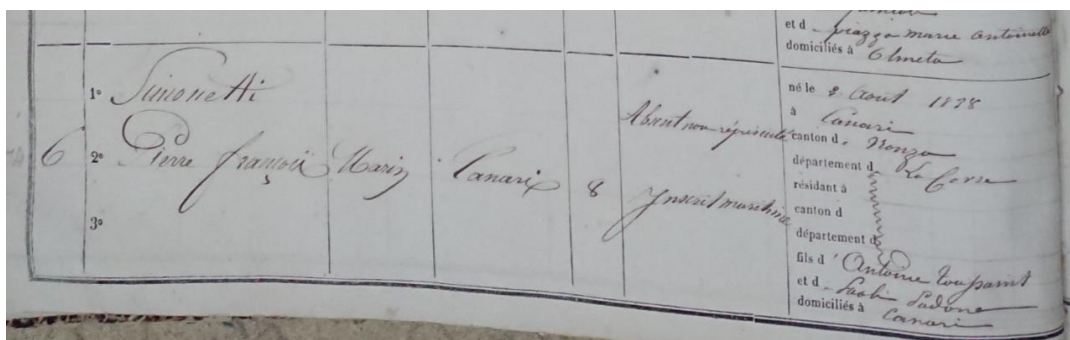 et d piazza marie antoinette
domiciliés à Olmeta
6
1º Simonetti
2º Pierre françois
3º
Marin
Canari
8
Absent non représenté
Inscrit maritime
né le 2 Aout 1878
à Canari
canton d Nonza
département d La Corse
résidant à
canton d
département d
fils d'Antoine Toussaint
et d Paoli Padone
domiciliés à Canari